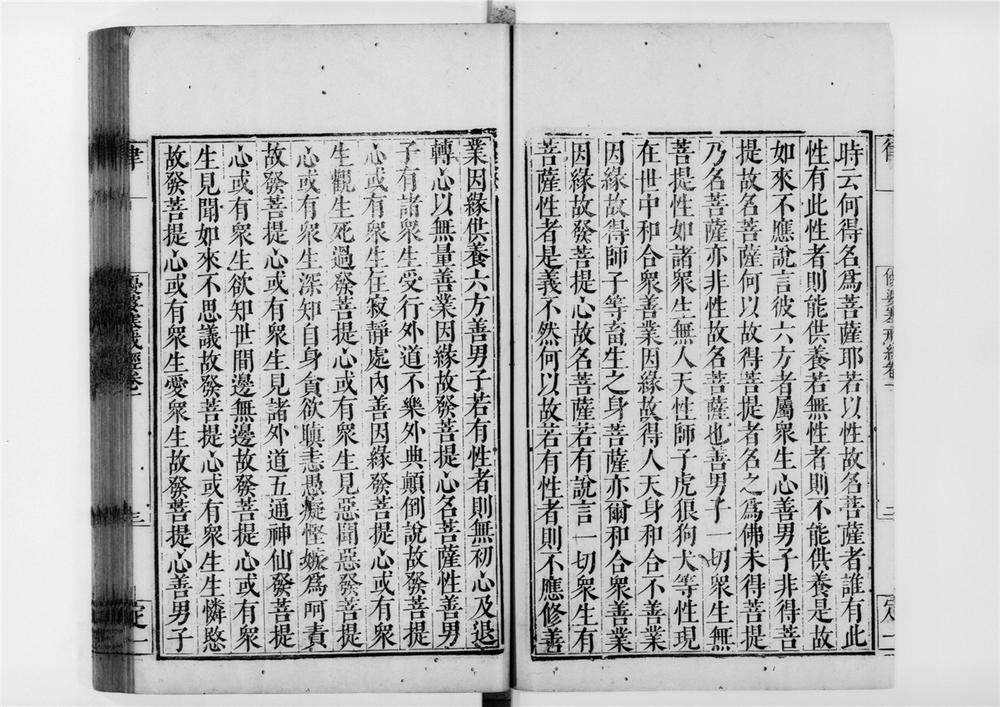 時云何得名爲菩薩耶若以性故名菩薩者誰有此
性有此性者則能供養若無性者則不能供養是故
如來不應說言彼六方者屬衆生心善男子非得菩
提故名菩薩何以故得菩提者名之爲佛未得菩提
乃名菩薩亦非性故名菩薩也善男子一切衆生無
菩提性如諸衆生無人天性師子虎狼狗犬等性現
在世中和合衆善業因緣故得人天身和合不善業
因緣故得師子等畜生之身菩薩亦爾和合衆善業
因緣故發菩提心故名菩薩若有說言一切衆生有
菩薩性者是義不然何以故若有性者則不應修善
律
優婆塞戒經卷一
定
業因緣供養六方善男子若有性者則無初心及退
轉心以無量善業因緣故發菩提心名菩薩性善男
子有諸衆生受行外道不樂外典顛倒說故發菩提
心或有衆生住寂靜處內善因緣發菩提心或有衆
生觀生死過發菩提心或有衆生見惡聞惡發菩提
心或有衆生深知自身貪欲瞋恚愚癡慳嫉爲呵責
故發菩提心或有衆生見諸外道五通神仙發菩提
心或有衆生欲知世間邊無邊故發菩提心或有衆
生見聞如來不思議故發菩提心或有衆生生憐愍
故發菩提心或有衆生愛衆生故發菩提心善男子
律
優婆塞戒經卷一
三
定一